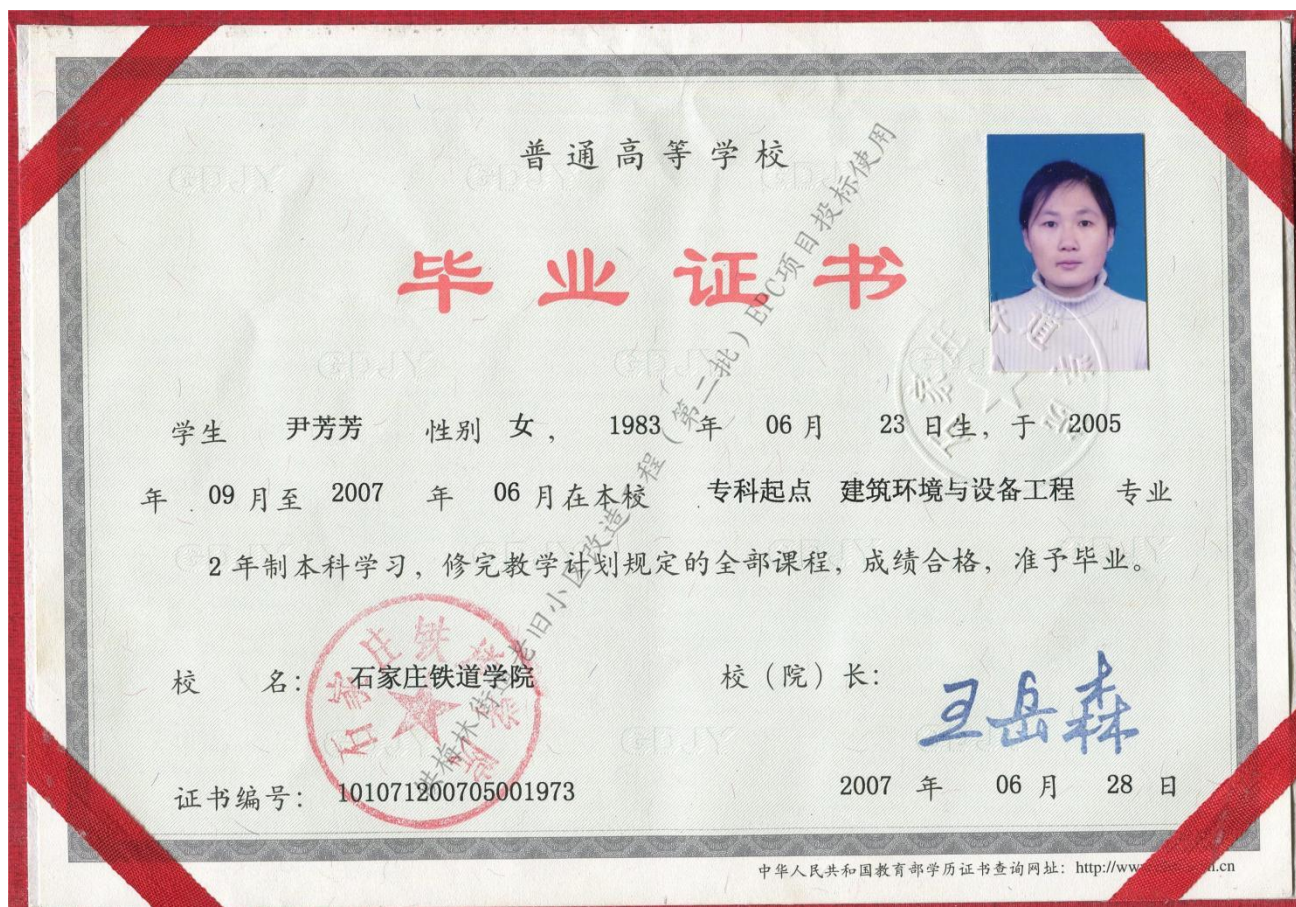 普通高等学校
毕业证书
学生 尹芳芳 性别 女， 1983 年 06 月 23 日生，于 2005
年 09 月至 2007 年 06 月在本校 专科起点 建筑环境与设备工程 专业
2 年制本科学习，修完教学计划规定的全部课程，成绩合格，准予毕业。
校 名： 石家庄铁道学院 校（院）长： 王岳森
证书编号： 101071200705001973 2007 年 06 月 28 日
中华人民共和国教育部学历证书查询网址： http://www
石家庄铁道学院
石家庄铁道学院
梅林街 老旧小区改造 程（第二批）EPC项目投标使用